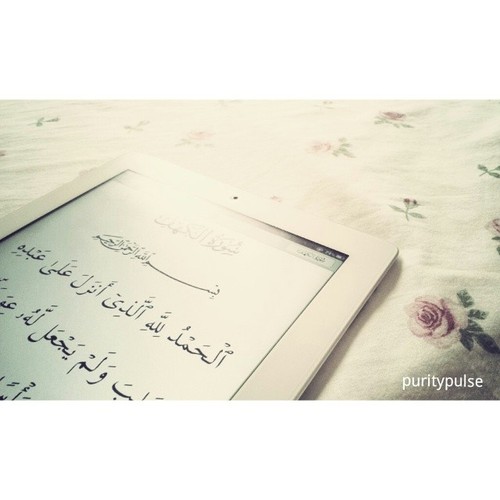 سورة الكهف
بسم الله الرحمن الرحيم
ٱلْحَمْدُ لِلَّهِ ٱلَّذِىٓ أَنزَلَ عَلَىٰ عَبْدِهِ
وَلَمْ يَجْعَل لَّهُۥ
puritypulse